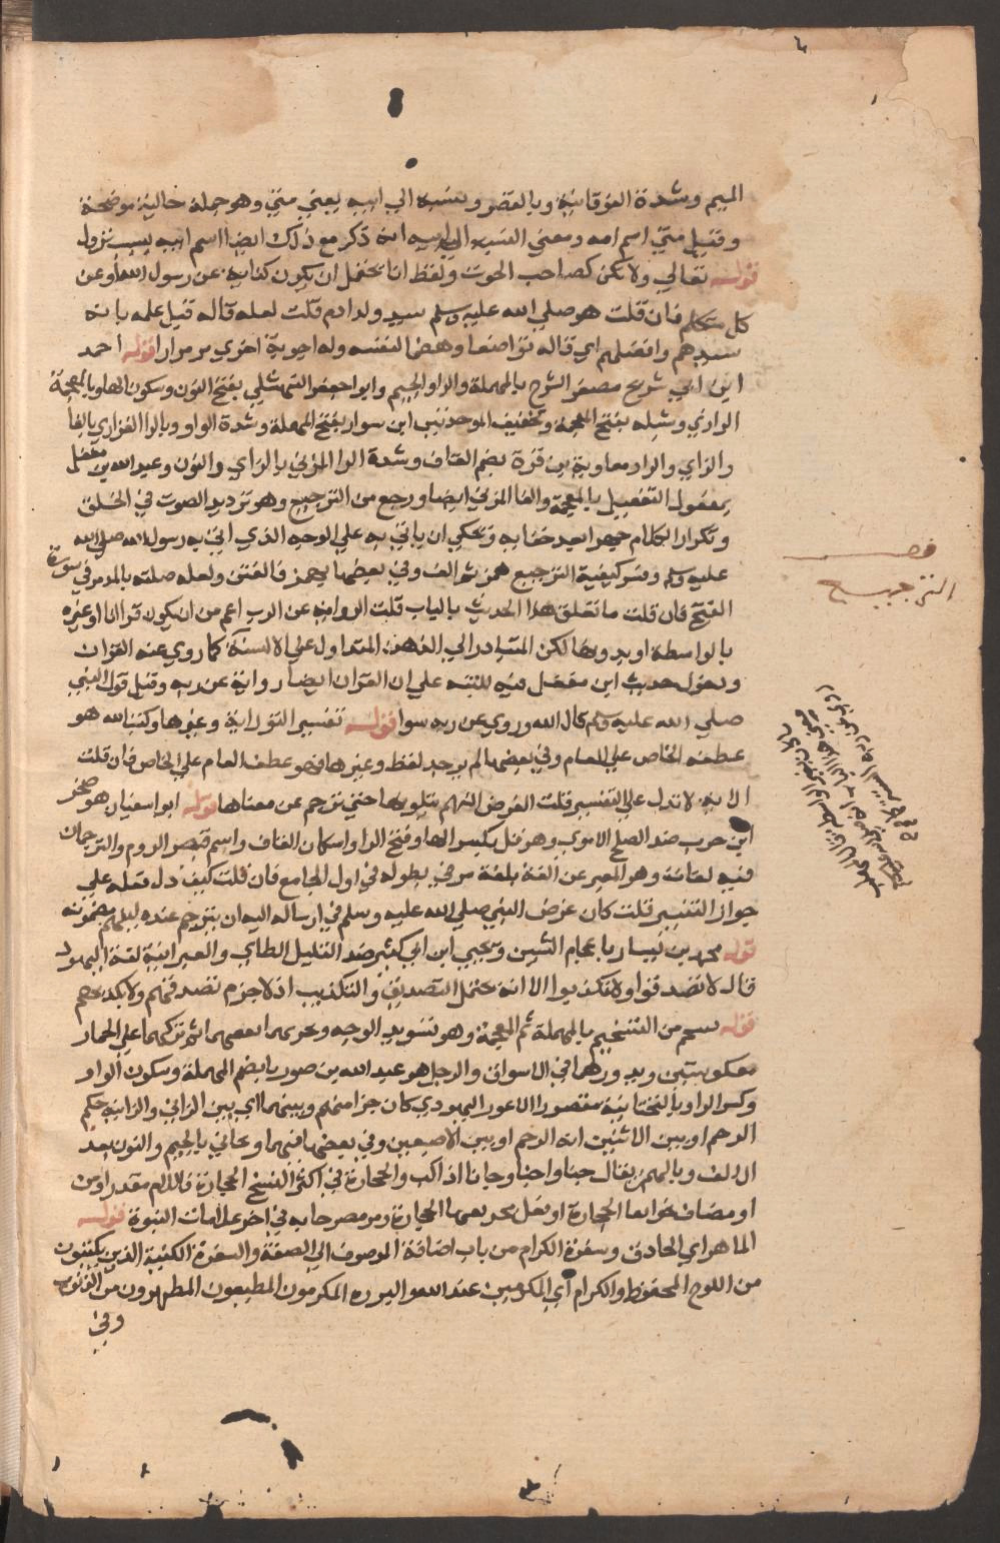 الميم وشدة الفوقانية وبالقصر ونسبه الى ابيه يعني متى وهو جملة حالية موضحة
وقيل متى اسم امه ومعنى النسبه الى ابيه انه ذكر مع ذلك ايضا اسم ابيه بسبب نزول
قوله تعالى ولا تكن كصاحب الحوت ولفظ انا يحتمل ان يكون كناية عن رسول الله او عن
كل متكلم فان قلت هو صلى الله عليه وسلم سيد ولد ادم قلت لعله قاله قبل علمه بانه
سيدهم وافضلهم اي قاله تواضعا وهضما لنفسه وله اجوبة اخرى مر مرارا قوله احمد
ابن ابي شريح مصغر الشرح بالمهملة والراء والجيم وابو جعفر النهشلي بفتح النون وسكون الهاء وبالمعجمة
الرازي وشبابه بفتح المعجمة وتخفيف الموحدتين ابن سوار بفتح المهملة وشدة الواو وبالراء الفزاري بالفا
والزاي والراء ومعاوية بن قرة بضم القاف وشدة الراء المزني بالزاي والنون وعبد الله بن مغفل
بمفعول التغفيل بالمعجمة والفا المزني ايضا ورجع من الترجيع وهو ترديد الصوت في الحلق
وتكرار الكلام جهرا بعد خفايه ويحكى ان ياتي به على الوجه الذي اتى به رسول الله صلى الله
عليه وسلم وفسر كيفية الترجيع همز ثم الف وفي بعضها بهمز فالفتين ولعله صلته بالمد مر في سورة
الفتح فان قلت ما تعلق هذا الحديث بالباب قلت الرواية عن الرب اعم من ان يكون قرآنا او غيره
بالواسطة او بدونها لكن المتبادر الى الذهن المتداول على الالسنة كما روي عنه القرآن
ودخول حديث ابن مغفل فيه للتنبه على ان القرآن ايضا رواية عن ربه وقيل قول النبي
صلى الله عليه وسلم قال الله وروي عن ربه سوا قوله تفسير التوراية وغيرها وكتب الله هو
عطف الخاص على العام وفي بعضها لم يوجد لفظ وغيرها فهو عطف العام على الخاص فان قلت
الاية لا تدل على التفسير قلت الغرض انهم يتلونها حتى تترجم عن معناها قوله ابو سفيان هو صخر
ابن حرب ضد الصلح الاموي وهرقل بكسر الها وفتح الراء واسكان القاف واسم قيصر الروم والترجمان
فيه لغات وهو المعبر عن لغة بلغة مر في بطوله في اول الجامع فان قلت كيف دل فعله على
جواز التفسير قلت كان غرض النبي صلى الله عليه وسلم في ارساله اليه ان يترجم عنده ليفهم مضمونه
قوله محمد بن بشار باعجام الشين ويحيى ابن ابي كثير ضد القليل الطاي والعبرانية لغة اليهود
قال لا تصدقوا ولا تكذبوا الا انه يحتمل التصديق والتكذيب اذ لا جزم بصدقهم ولا بكذبهم
قوله نسخم من التسخيم بالمهملة ثم المعجمة وهو تسويد الوجه ونخزيهما نفضحهما اي نركبهما على الحمار
معكوستين وندورهما في الاسواق والرجل هو عبد الله بن صوريا بضم المهملة وسكون الواو
وكسر الراء وبالتحتانية مقصورا الاعور اليهودي كان حبرا منهم وبينهما اي بين الزاني والزانية حكم
الرجم او بين الاثنين اية الرجم او بين الاصبعين وفي بعضها فيهما ويجاني بالجيم والنون بعد
الالف وبالهمز يقال جنا واجنا وجانا اذا اكب والحجارة في اكثر النسخ الحجارة فاللام مقدر او من
او مضاف
الماهر اي الحاذق وسفرة الكرام من باب اضافة الموصوف الى الصفة والسفرة الكتبة الذين يكتبون
من اللوح المحفوظ والكرام اي المكرمين عند الله والبررة المكرمون المطيعون المطهرون من الذنوب
وفي
الترجيع